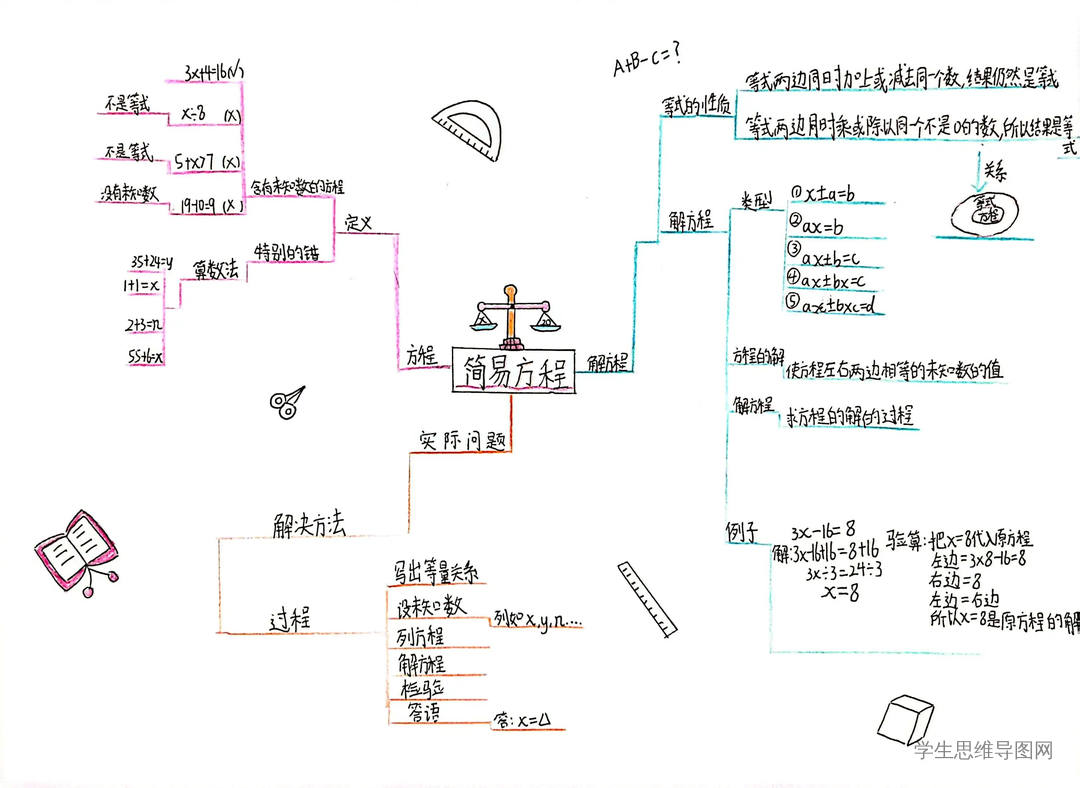 A+B-C=?
3x+4=16(√)
不是等式
x÷8 (x)
不是等式
5+x>7 (x)
没有未知数
19-10=9 (x)
含有未知数的方程
定义
特别的错
算数法
35+24=y
1+1=x
2+3=n
55+6=x
方程
简易方程
解方程
等式的性质
等式两边同时加上或减去同一个数,结果仍然是等式
等式两边同时乘或除以同一个不是0的数,所以结果是等式
关系
等式
方程
解方程
类型
①x±a=b
②ax=b
③ax±b=c
④ax±bx=c
⑤ax±bxc=d
方程的解
使方程左右两边相等的未知数的值
解方程
求方程的解的过程
例子
3x-16=8
解:3x-16+16=8+16
3x÷3=24÷3
x=8
验算:把x=8代入原方程
左边=3x8-16=8
右边=8
左边=右边
所以x=8是原方程的解
实际问题
解决方法
过程
写出等量关系
设未知数
列如x,y,n....
列方程
解方程
检验
答语
答:x=△
学生思维导图网